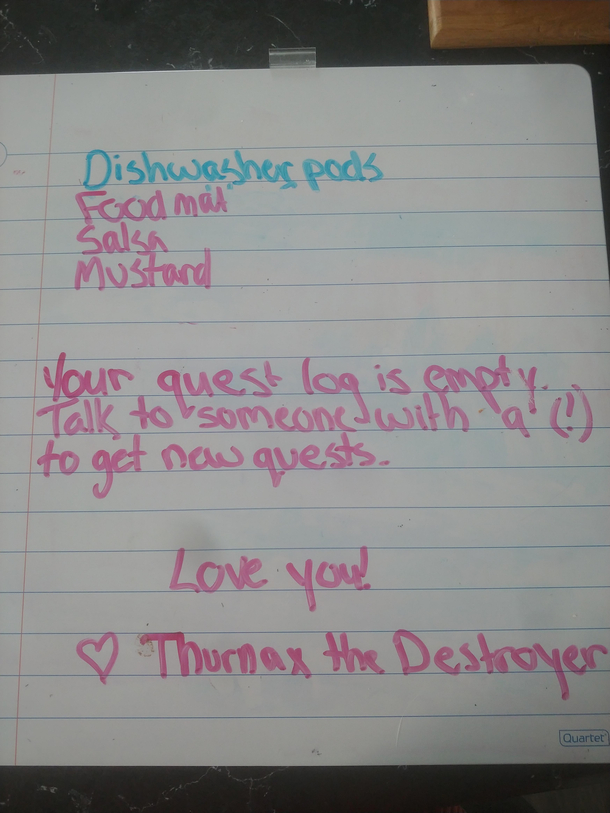 Dishwasher pods
Food mat
Salsa
Mustard
Your quest log is empty.
Talk to someone with a (!)
to get new quests.
Love you!
♡ Thurnax the Destroyer
Quartet